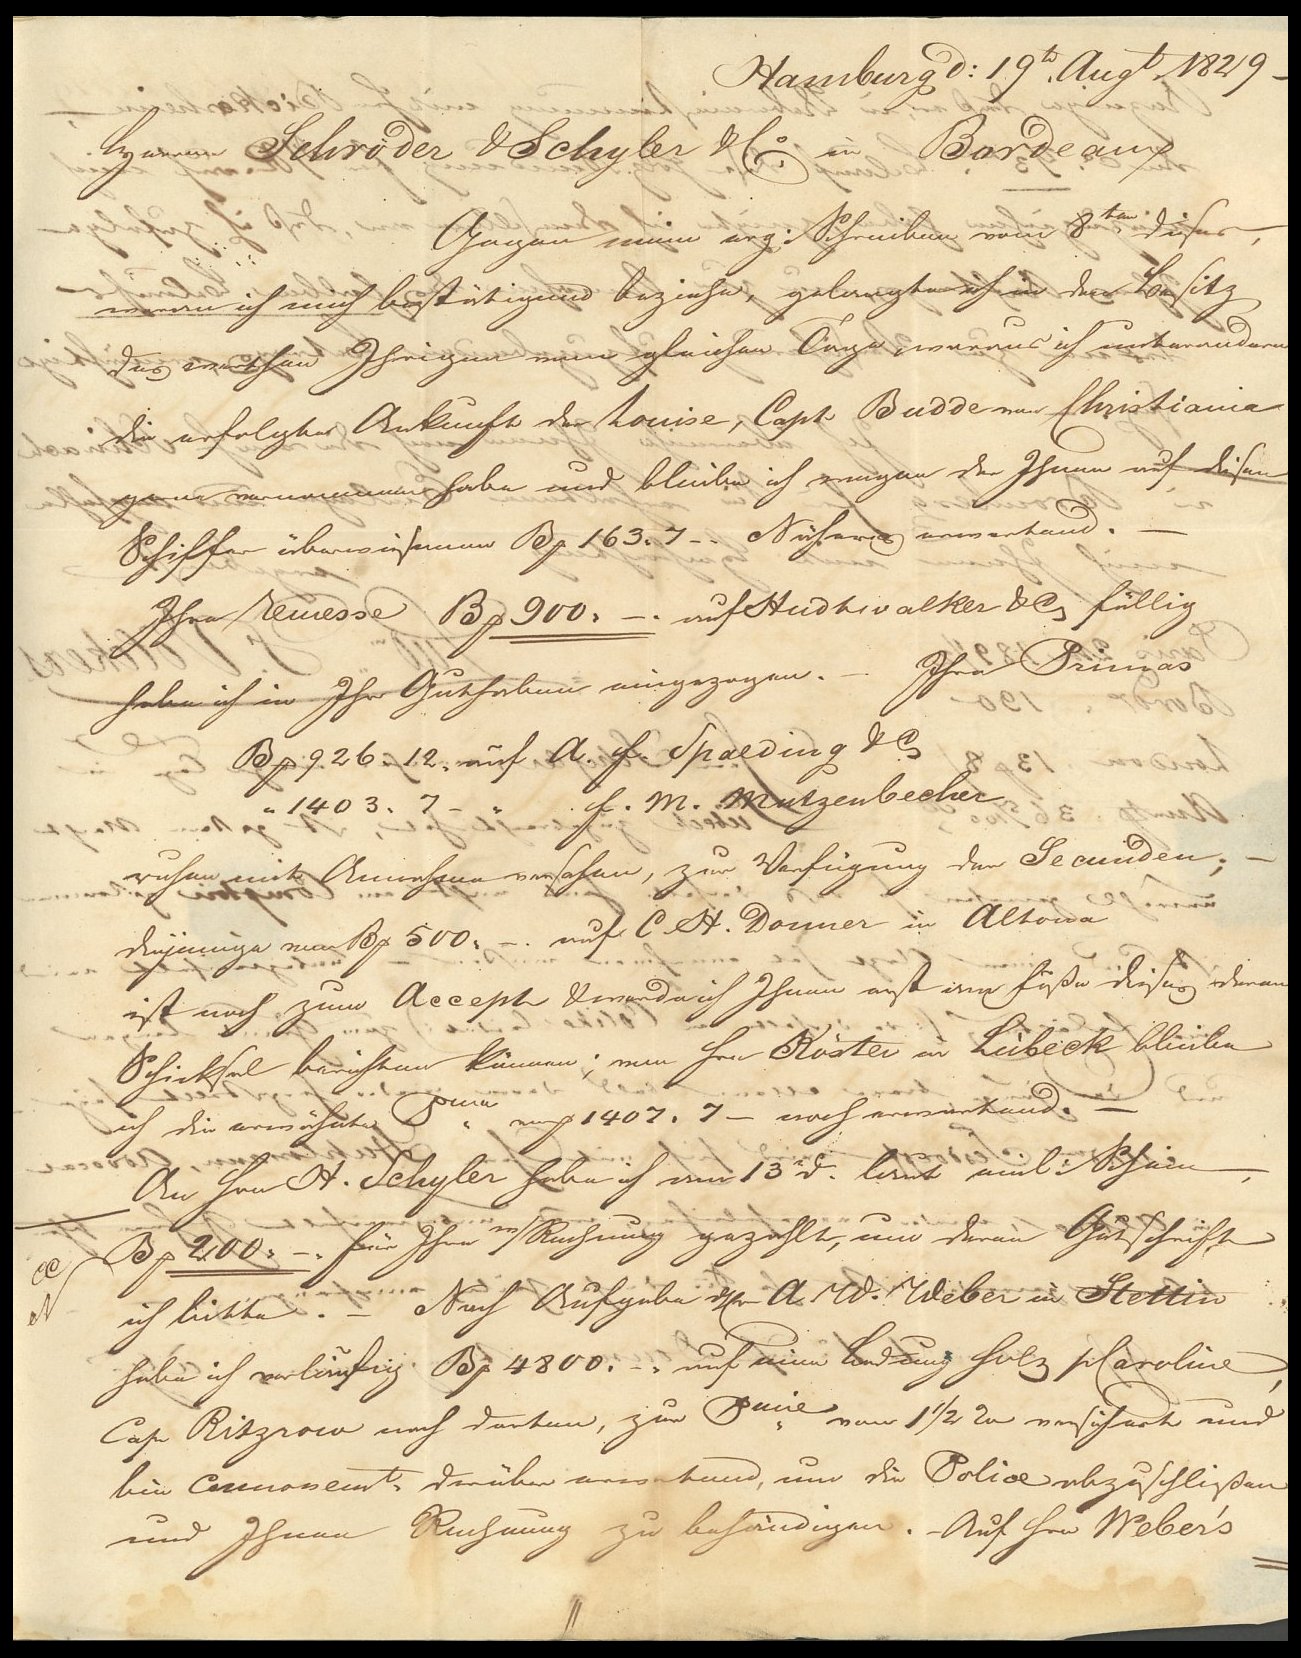 Hamburg d: 19t. Augt. 1829 –
Herren Schröder & Schyler & Co. in Bordeaux
Gegen mein erg: Schreiben vom 8ten dieses,
woran ich mich bestätigend beziehe, gelangte ich in den Besitz
des werthen Ihrigen vom gleichen Tage, woraus ich unter andern
die erfolgte Ankunft der Louise, Capt Budde von Christiania
gern vernommen habe und bleibe ich wegen der Ihnen auf diesen
Schiffer überwiesenen B₰ 163. 7 –. Näheres erwartend. –
Ihre Remesse B₰ 900. –. auf Hudtwalker & Co fällig
habe ich in Ihr Guthaben eingezogen. – Ihre Primas
B₰ 926. 12. auf A. F. Spalding & Co
" 1403. 7 – " F. M. Mutzenbecher
ruhen mit Annahme versehen, zur Verfügung der Secunden; –
diejenige von B₰ 500. –. auf C. H. Donner in Altona
ist noch zum Accept & werde ich Ihnen erst am Fuße dieses deren
Schicksal berichten können; von Hrn Köster in Lübeck bleibe
ich die erwähnte 1407. 7 – noch erwartend. –
An Hrn H. Schyler habe ich am 13. d. laut einl: Schein,
B₰ 200. –. für Ihre Rechnung gezahlt, um deren Gutschrift
ich bitte. – Nach Aufgabe des Hrn A. W. Weber in Stettin
habe ich vorläufig B₰ 4800. –. auf eine Ladung Holz p Caroline,
Cap Ritzrow nach dorten, zur Pmie von 1 1/2 % versichert und
bin darüber erwartend, um die Police abzuschließen
und Ihnen Rechnung zu behändigen. – Auf Hrn Weber's